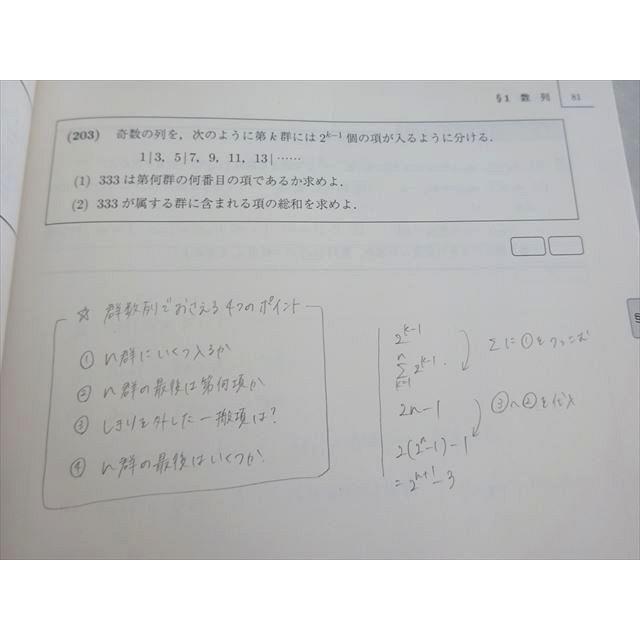 §1 数 列 81
(203) 奇数の列を，次のように第k群には2^{k-1}個の項が入るように分ける．
1 | 3, 5 | 7, 9, 11, 13 | ……
(1) 333は第何群の何番目の項であるか求めよ．
(2) 333が属する群に含まれる項の総和を求めよ．
☆ 群数列でおさえる4つのポイント
① n群にいくつ入るか
② n群の最後は第何項か
③ しきりを外した一搬項は?
④ n群の最後はいくつか
2^{k-1}
Σ_{k=1}^{n} 2^{k-1}
Σに①をつっこむ
2n-1
③へ②を代入
2(2^n-1)-1
=2^{n+1}-3
S